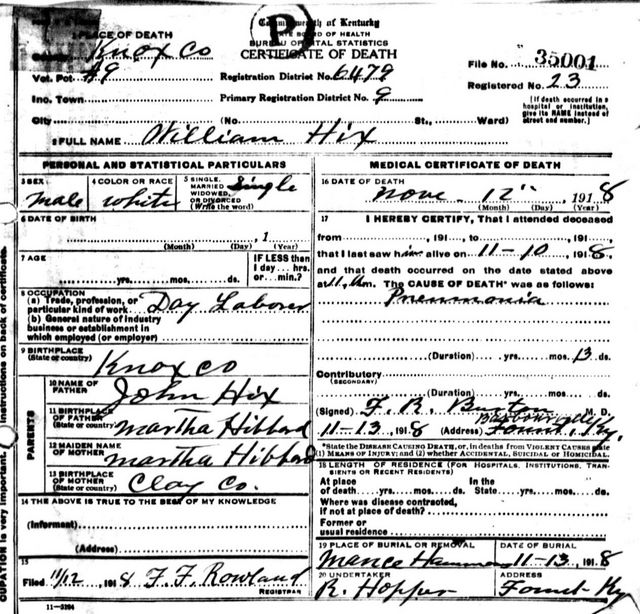 Commonwealth of Kentucky
STATE BOARD OF HEALTH
BUREAU OF VITAL STATISTICS
CERTIFICATE OF DEATH
1 PLACE OF DEATH
County Knox Co
Vot. Pct. #9
Registration District No. 6479
File No. 35001
Inc. Town
Primary Registration District No. 9
Registered No. 23
[If death occurred in a hospital or institution, give its NAME instead of street and number.]
City (No. St., Ward)
2 FULL NAME William Hix
PERSONAL AND STATISTICAL PARTICULARS
3 SEX
male
4 COLOR OR RACE
white
5 SINGLE, MARRIED, WIDOWED, OR DIVORCED (Write the word)
Single
6 DATE OF BIRTH
, 1
(Month) (Day) (Year)
7 AGE
yrs. mos. ds.
IF LESS than 1 day... hrs. or... min.?
8 OCCUPATION
(a) Trade, profession, or particular kind of work Day Laborer
(b) General nature of industry business or establishment in which employed (or employer)
9 BIRTHPLACE
(State or country) Knox Co
PARENTS
10 NAME OF FATHER John Hix
11 BIRTHPLACE OF FATHER (State or country) Martha Hibbard
12 MAIDEN NAME OF MOTHER Martha Hibbard
13 BIRTHPLACE OF MOTHER (State or country) Clay Co.
14 THE ABOVE IS TRUE TO THE BEST OF MY KNOWLEDGE
(Informant)
(Address)
15
Filed 11/12, 1918 F. F. Rowland
REGISTRAR
11—3294
MEDICAL CERTIFICATE OF DEATH
16 DATE OF DEATH
Nove. 12", 1918
(Month) (Day) (Year)
17 I HEREBY CERTIFY, That I attended deceased
from , 191 , to , 191 ,
that I last saw him alive on 11-10, 1918,
and that death occurred on the date stated above
at 11, m. The CAUSE OF DEATH* was as follows:
Pneumonia
(Duration) yrs. mos. 13 ds.
Contributory
(SECONDARY)
(Duration) yrs. mos. ds.
(Signed) F. R. M. D.
11-13, 1918 (Address) Barbourville Ky.
*State the DISEASE CAUSING DEATH, or, in deaths from VIOLENT CAUSES state
(1) MEANS OF INJURY; and (2) whether ACCIDENTAL, SUICIDAL or HOMICIDAL.
18 LENGTH OF RESIDENCE (FOR HOSPITALS, INSTITUTIONS, TRANSIENTS OR RECENT RESIDENTS)
At place of death yrs. mos. ds. In the State yrs. mos. ds.
Where was disease contracted,
if not at place of death?
Former or
usual residence
19 PLACE OF BURIAL OR REMOVAL
Mance
DATE OF BURIAL
11-13, 1918
20 UNDERTAKER
R. Hopper
ADDRESS
Ky
OCCUPATION is very important. instructions on back of certificate.